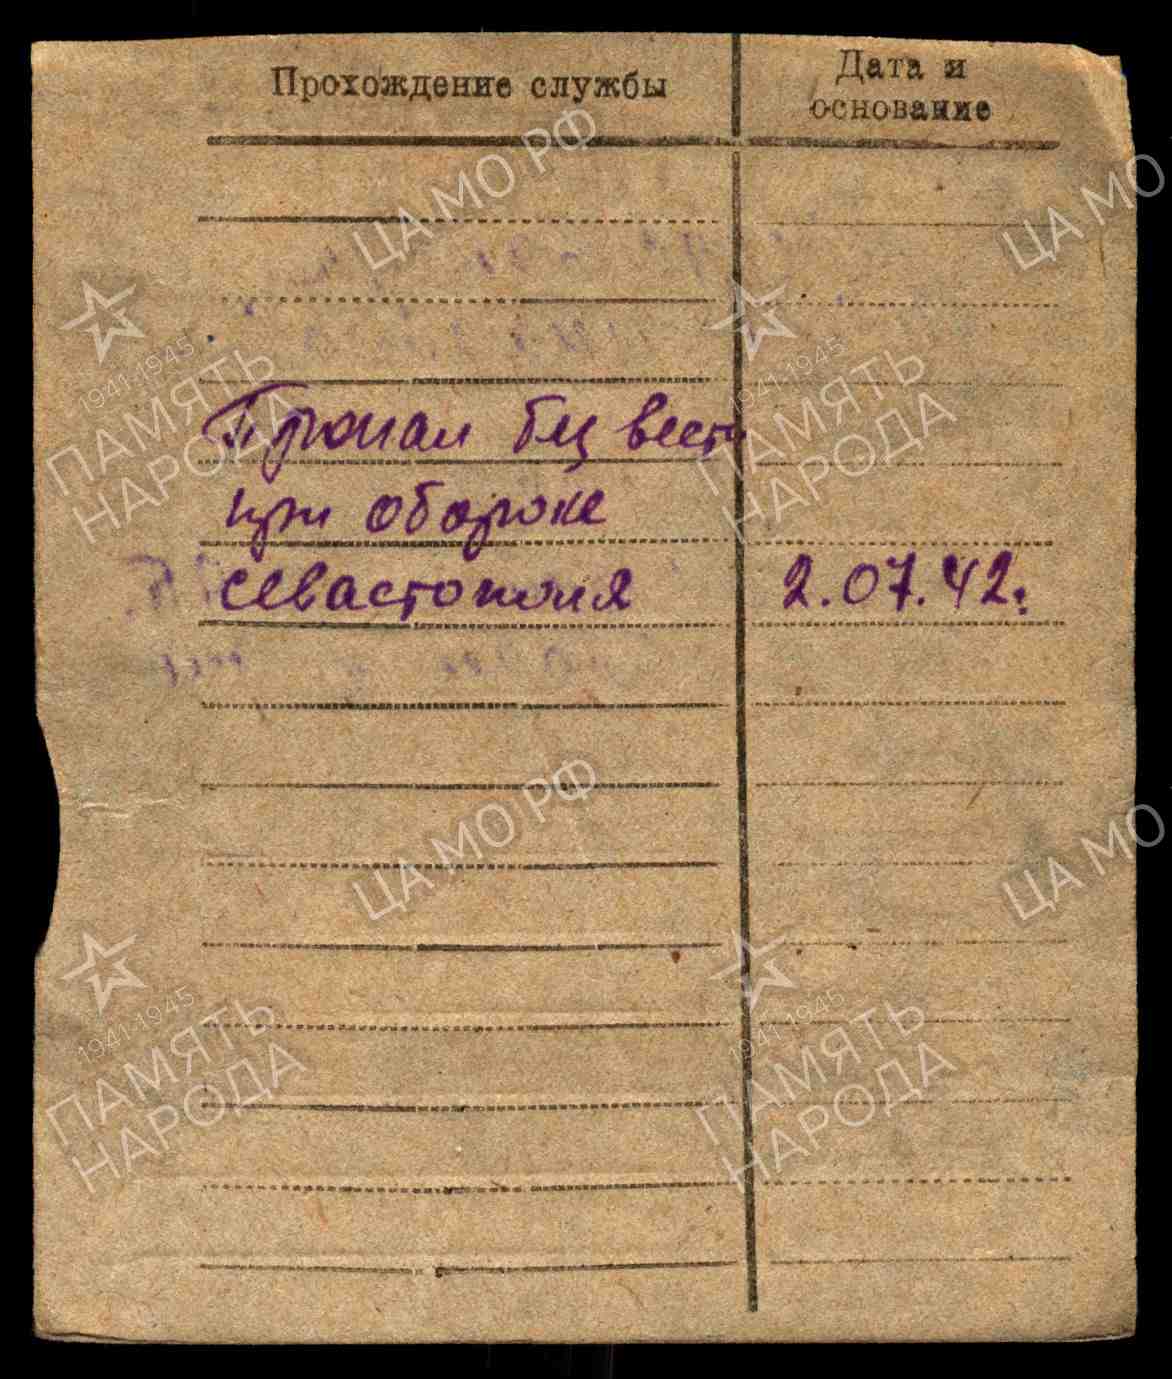 Прохождение службы
Дата и
основание
Пропал без вести
при обороне
Севастополя 2.07.42.
ЦА МО РФ
ЦА МО
1941-1945
ПАМЯТЬ
НАРОДА
1941-1945
ПАМЯТЬ
НАРОДА
ЦА МО РФ
ЦА МО
1941-1945
ПАМЯТЬ
НАРОДА
1941-1945
ПАМЯТЬ
НАРОДА